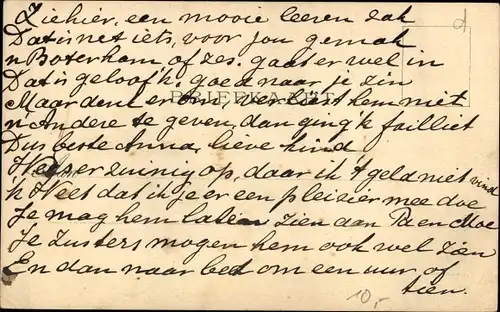 Ziehier, een mooie leeren zak
Dat is net iets, voor jou gemak
'n Boterham of zes. gaat er wel in
Dat is geloof 'k, goed naar je zin
BRIEFKAART
Maar denk er om, verliest hem niet
'n Andere te geven, dan ging 'k failliet
Dus beste Anna, lieve kind
Wees er zuinig op, daar ik 't geld niet vind
'k Weet dat ik je er een pleizier mee doe
Je mag hem laten zien aan Pa en Moe
Je zusters mogen hem ook wel zien
En dan naar bed om een uur of
tien.
10,-